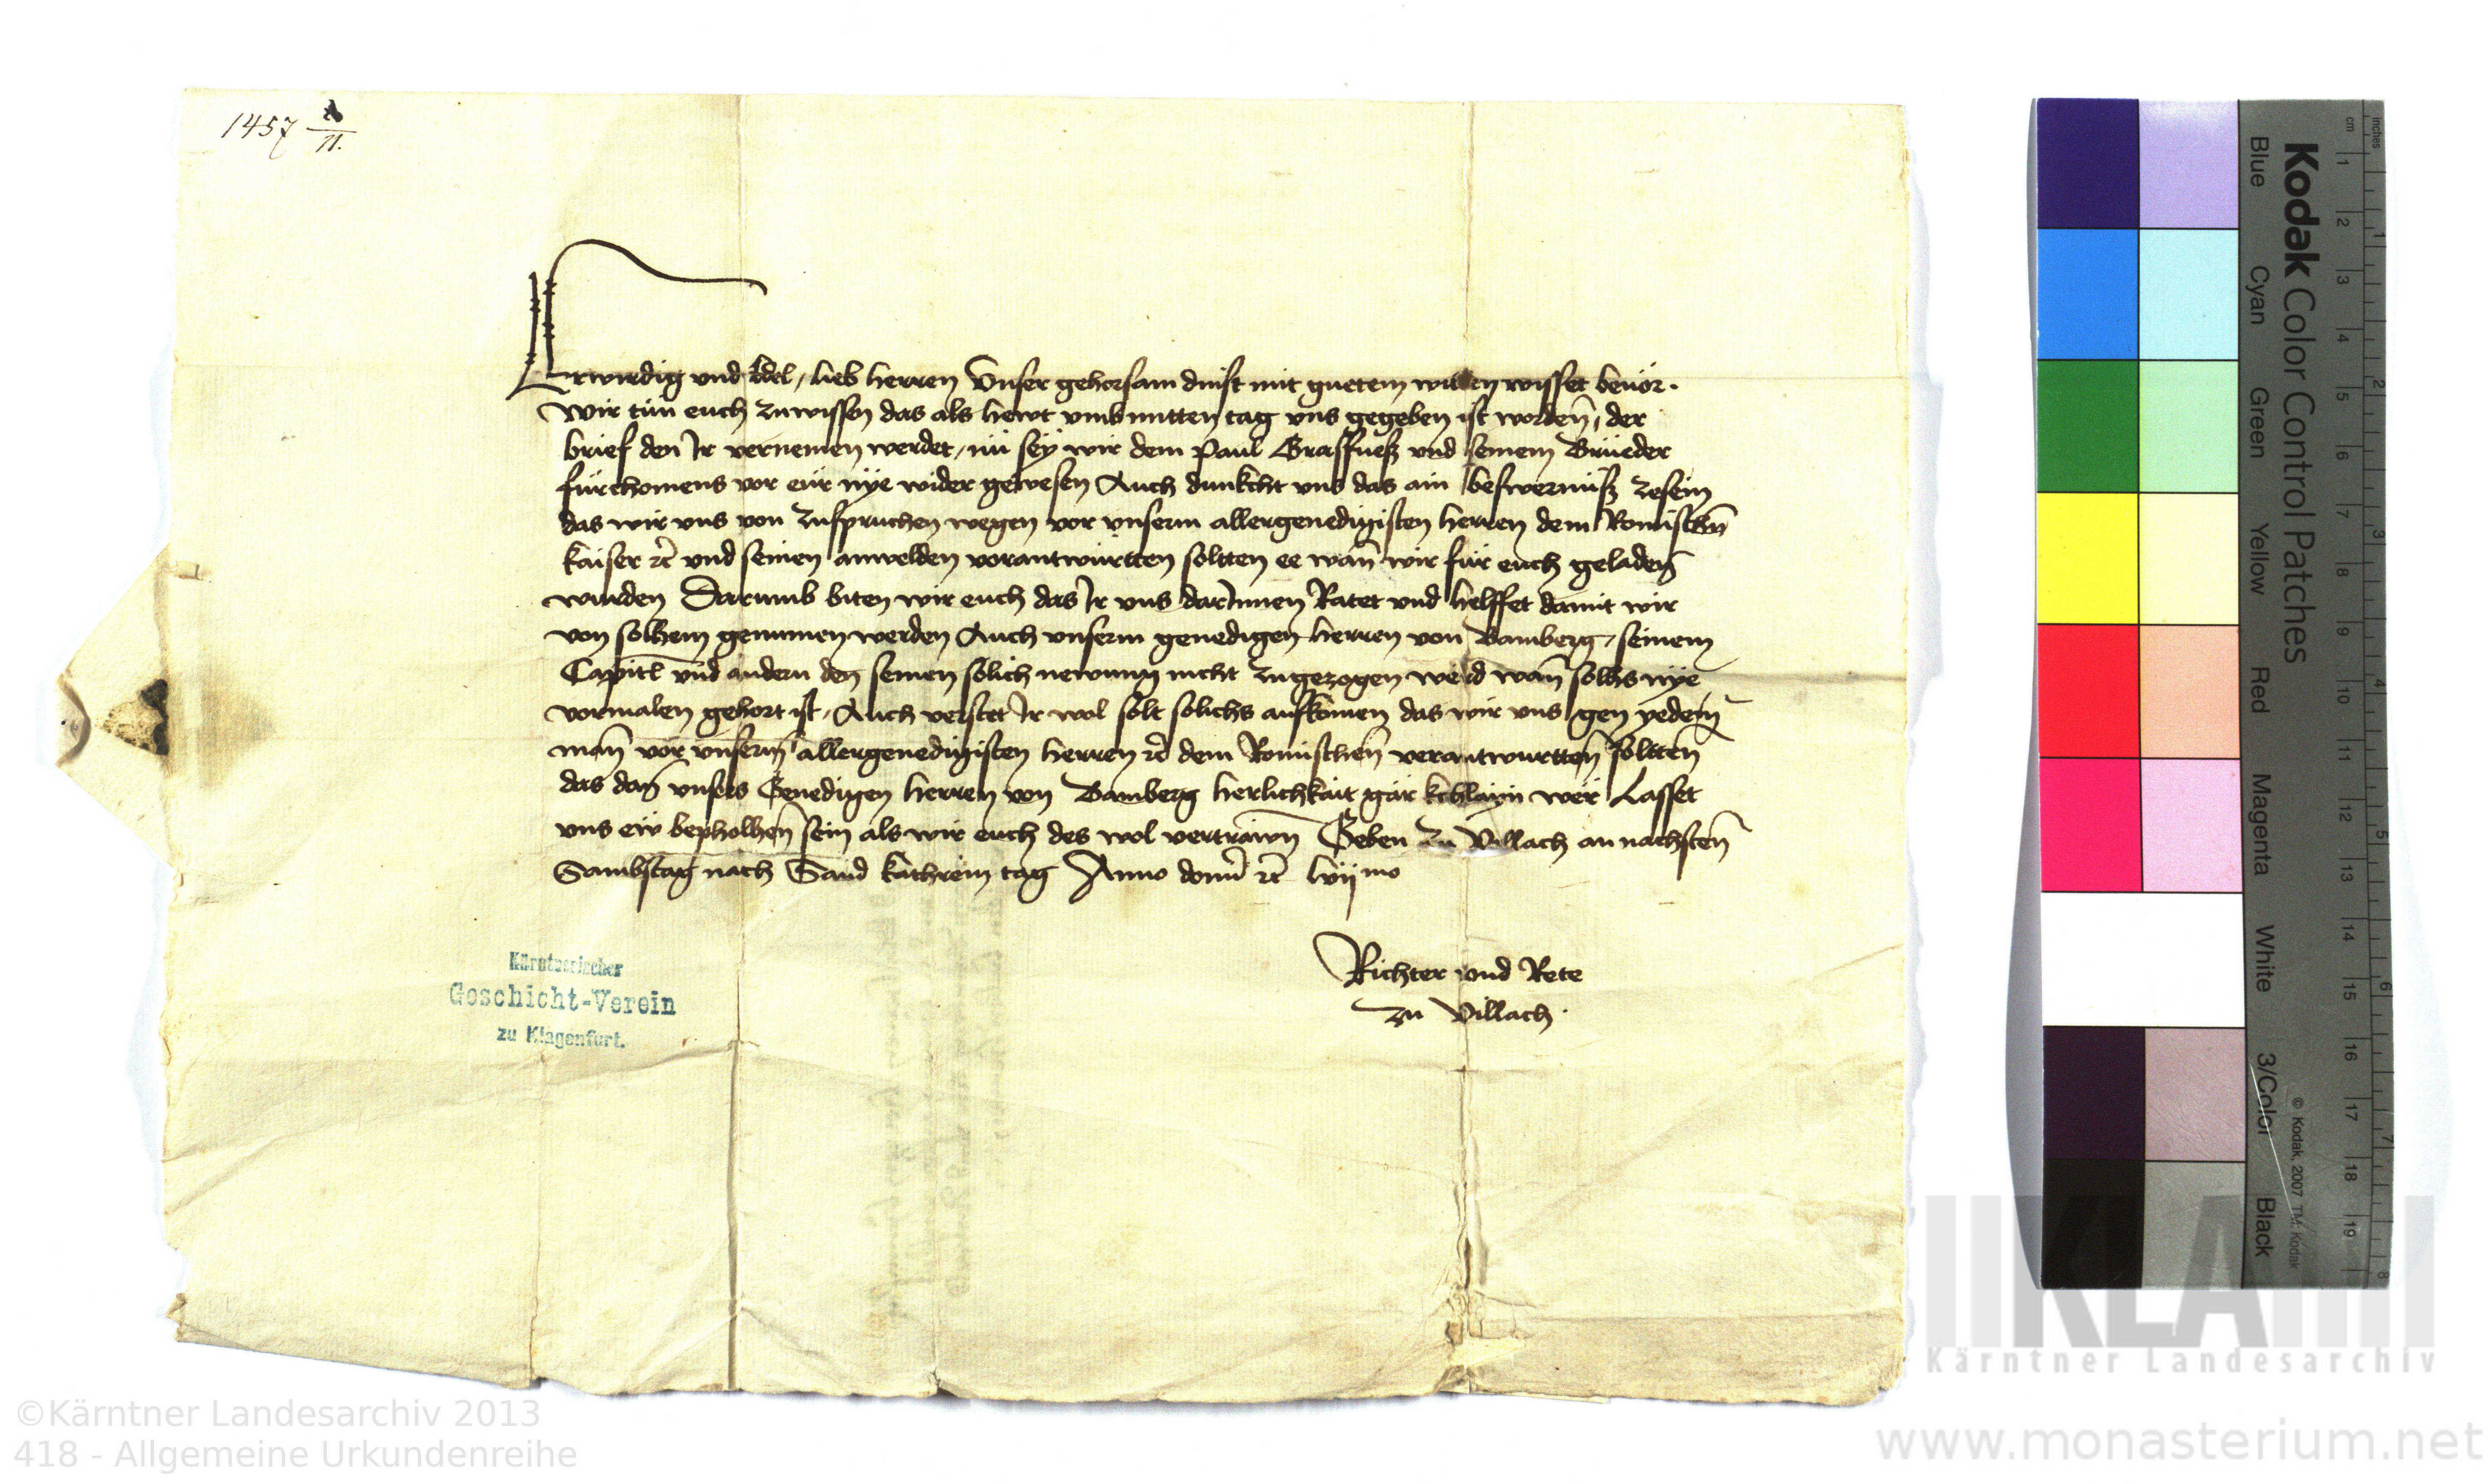 1457
11.
Erwirdig vnd Edel, lieb herren Vnser gehorsam dinst mit guetem willen wisset beuor.
Wir tün euch zuwissen das als hewt vmb mitten tag vns gegeben ist worden, der
brief den Ir vernemen werdet, nü sey wir dem Paul Grasfuesz vnd seinem Brüeder
fürchomens vor eür nye wider gewesen Auch dunkcht vns das ain beswernüsz zesein
das wir vns von zusspruchen wegen vor vnserm allergenedigisten herren dem Romischn̄
kaiser ꝛc̄ vnd seinen anwelden vorantwürtten soltten ee wan̄ wir für euch geladen̄
wurden Darumb biten wir euch das Ir vns darInnen Ratet vnd helffet damit wir
von solhem genumen werden Auch vnserm genedigen herren von Bamberg, seinem
Capitl vnd andern den seinen solich newung nicht zugezogen werd wan̄ solhs nye
vormalen gehort ist, Auch verstet Ir wol solt solichs aufkomen das wir vns gen yedem̄
man̄ vor vnserm̄ allergenedigisten herren ꝛc̄ dem Romischen̄ verantwurtten̄ soltten̄
das dan̄ vnsers Genedigen herren von Bamberg herlichkait gar kchlayn wer Lasset
vns ew bepholhen̄ sein als wir euch des wol vertrawn̄ Geben zu Villach an nachsten̄
Sambstag nach Sand kathrein tag Anno domī ꝛc̄ lvij mo
Richter vnd Rete
zu Villach.
Kärntnerischer
Geschicht-Verein
zu Klagenfurt.
Kodak Color Control Patches
Blue Cyan Green Yellow Red Magenta White 3/Color Black
© Kodak, 2007 TM: Kodak
inches 1 2 3 4 5 6 7 8
cm 1 2 3 4 5 6 7 8 9 10 11 12 13 14 15 16 17 18 19
KLA
Kärntner Landesarchiv
©Kärntner Landesarchiv 2013
418 - Allgemeine Urkundenreihe
www.monasterium.net